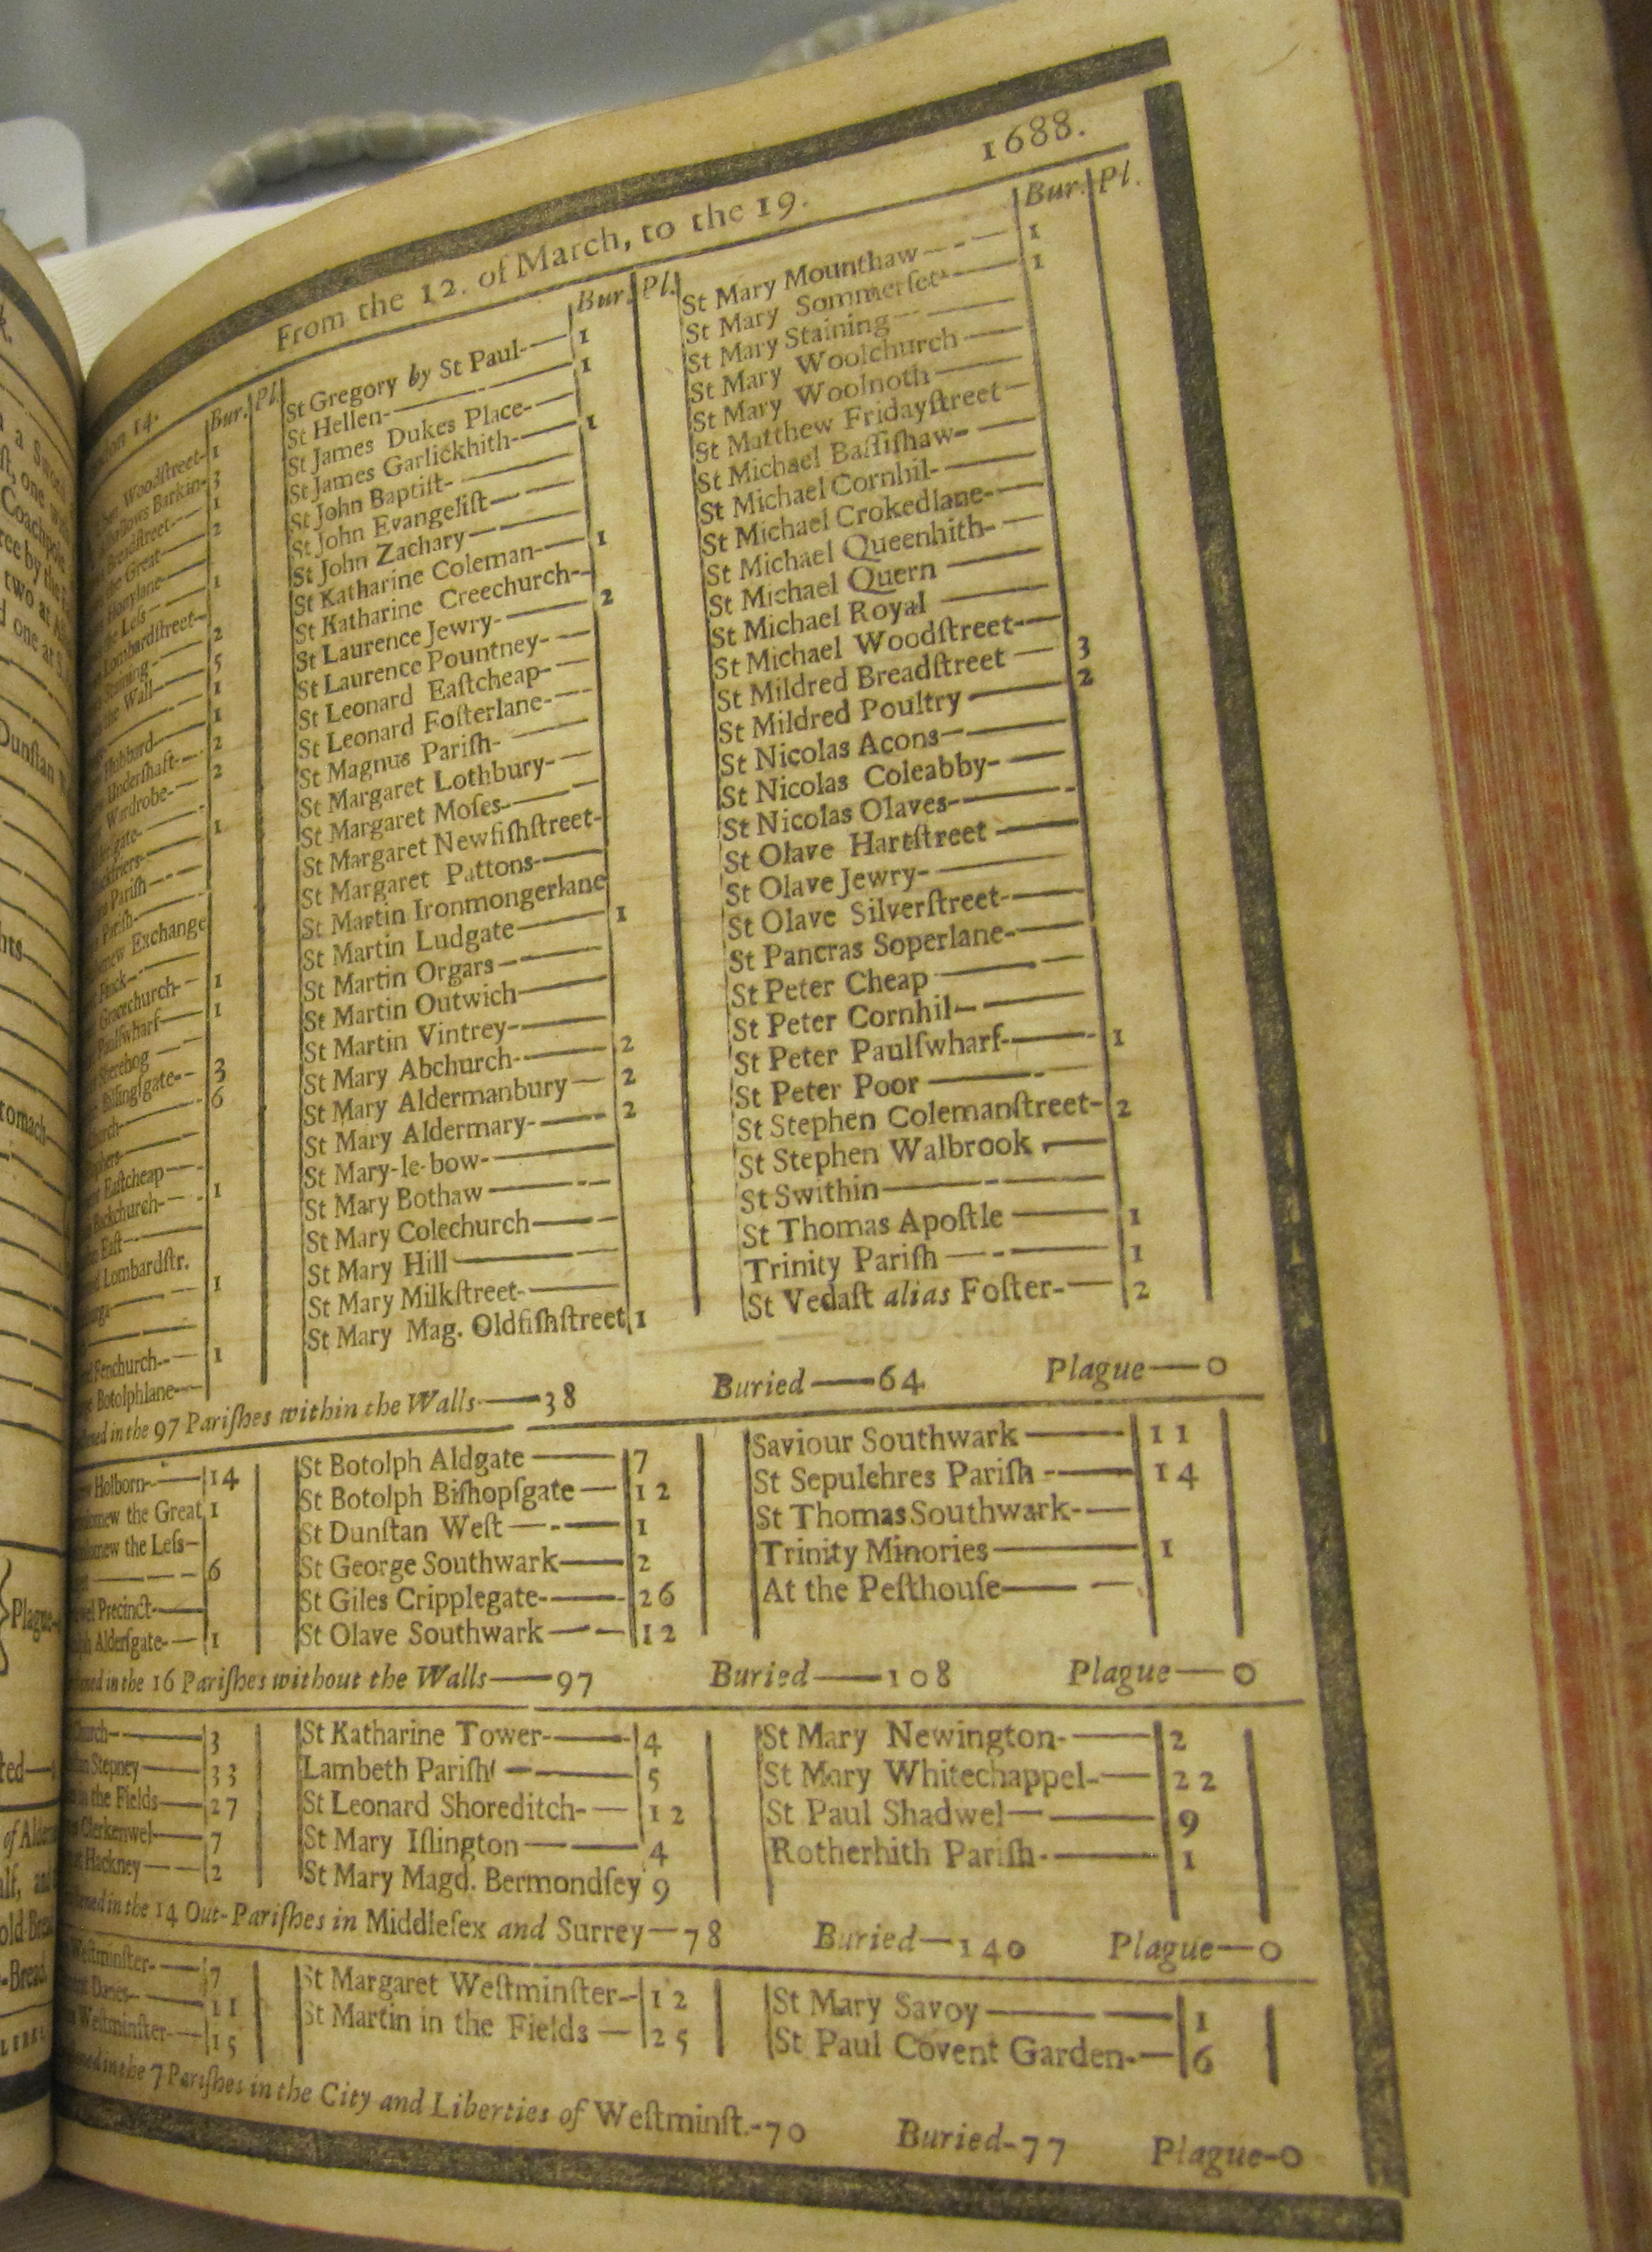 From the 12. of March, to the 19. 1688.
14.
Bur. Pl.
Woodſtreet- 1
Barkin- 3
Breadſtreet- 1
the Great 2
Honylane-
Leſs 1
Lombardſtreet-
Staining 2
the Wall 5
1
Hubbard 1
Underſhaft- 2
Wardrobe- 2
1
Pariſh
Pariſh-
Exchange
Gracechurch- 1
Paulſwharf 1
Sherehog
Billingſgate- 3
6
Eaſtcheap
Backchurch- 1
Eaſt
Lombardſtr.
1
Fenchurch- 1
Botolphlane-
Bur. Pl.
St Gregory by St Paul- 1
St Hellen- 1
St James Dukes Place-
St James Garlickhith- 1
St John Baptiſt-
St John Evangeliſt
St John Zachary
St Katharine Coleman- 1
St Katharine Creechurch-
St Laurence Jewry- 2
St Laurence Pountney-
St Leonard Eaſtcheap-
St Leonard Foſterlane-
St Magnus Pariſh-
St Margaret Lothbury-
St Margaret Moſes-
St Margaret Newfiſhſtreet-
St Margaret Pattons-
St Martin Ironmongerlane
St Martin Ludgate 1
St Martin Orgars
St Martin Outwich
St Martin Vintrey-
St Mary Abchurch- 2
St Mary Aldermanbury 2
St Mary Aldermary- 2
St Mary-le-bow-
St Mary Bothaw
St Mary Colechurch
St Mary Hill
St Mary Milkſtreet-
St Mary Mag. Oldfiſhſtreet 1
Bur. Pl.
St Mary Mounthaw 1
St Mary Sommerſet 1
St Mary Staining
St Mary Woolchurch
St Mary Woolnoth
St Matthew Fridayſtreet
St Michael Baſſiſhaw-
St Michael Cornhil-
St Michael Crokedlane-
St Michael Queenhith-
St Michael Quern
St Michael Royal
St Michael Woodſtreet-
St Mildred Breadſtreet 3
St Mildred Poultry 2
St Nicolas Acons
St Nicolas Coleabby-
St Nicolas Olaves-
St Olave Hartſtreet
St Olave Jewry-
St Olave Silverſtreet-
St Pancras Soperlane-
St Peter Cheap
St Peter Cornhil
St Peter Paulſwharf- 1
St Peter Poor
St Stephen Colemanſtreet- 2
St Stephen Walbrook
St Swithin
St Thomas Apoſtle 1
Trinity Pariſh 1
St Vedaſt alias Foſter- 2
in the 97 Pariſhes within the Walls—38 Buried—64 Plague—0
Holborn- 14
the Great 1
the Leſs
6
Precinct-
Alderſgate- 1
St Botolph Aldgate 7
St Botolph Biſhopſgate 12
St Dunſtan Weſt 1
St George Southwark 2
St Giles Cripplegate- 26
St Olave Southwark 12
Saviour Southwark 11
St Sepulchres Pariſh 14
St Thomas Southwark-
Trinity Minories 1
At the Peſthouſe
in the 16 Pariſhes without the Walls—97 Buried—108 Plague—0
3
Stepney 33
the Fields 27
Clerkenwel 7
Hackney 2
St Katharine Tower- 4
Lambeth Pariſh 5
St Leonard Shoreditch- 12
St Mary Iſlington 4
St Mary Magd. Bermondſey 9
St Mary Newington- 2
St Mary Whitechappel- 22
St Paul Shadwel 9
Rotherhith Pariſh- 1
in the 14 Out-Pariſhes in Middleſex and Surrey—78 Buried—140 Plague—0
Weſtminſter- 7
Danes 11
Weſtminſter- 15
St Margaret Weſtminſter 12
St Martin in the Fields 25
St Mary Savoy 1
St Paul Covent Garden- 6
in the 7 Pariſhes in the City and Liberties of Weſtminſt.-70 Buried-77 Plague-0